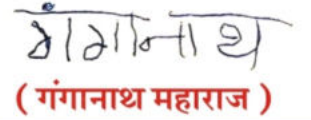 गंगानाथ
( गंगानाथ महाराज )